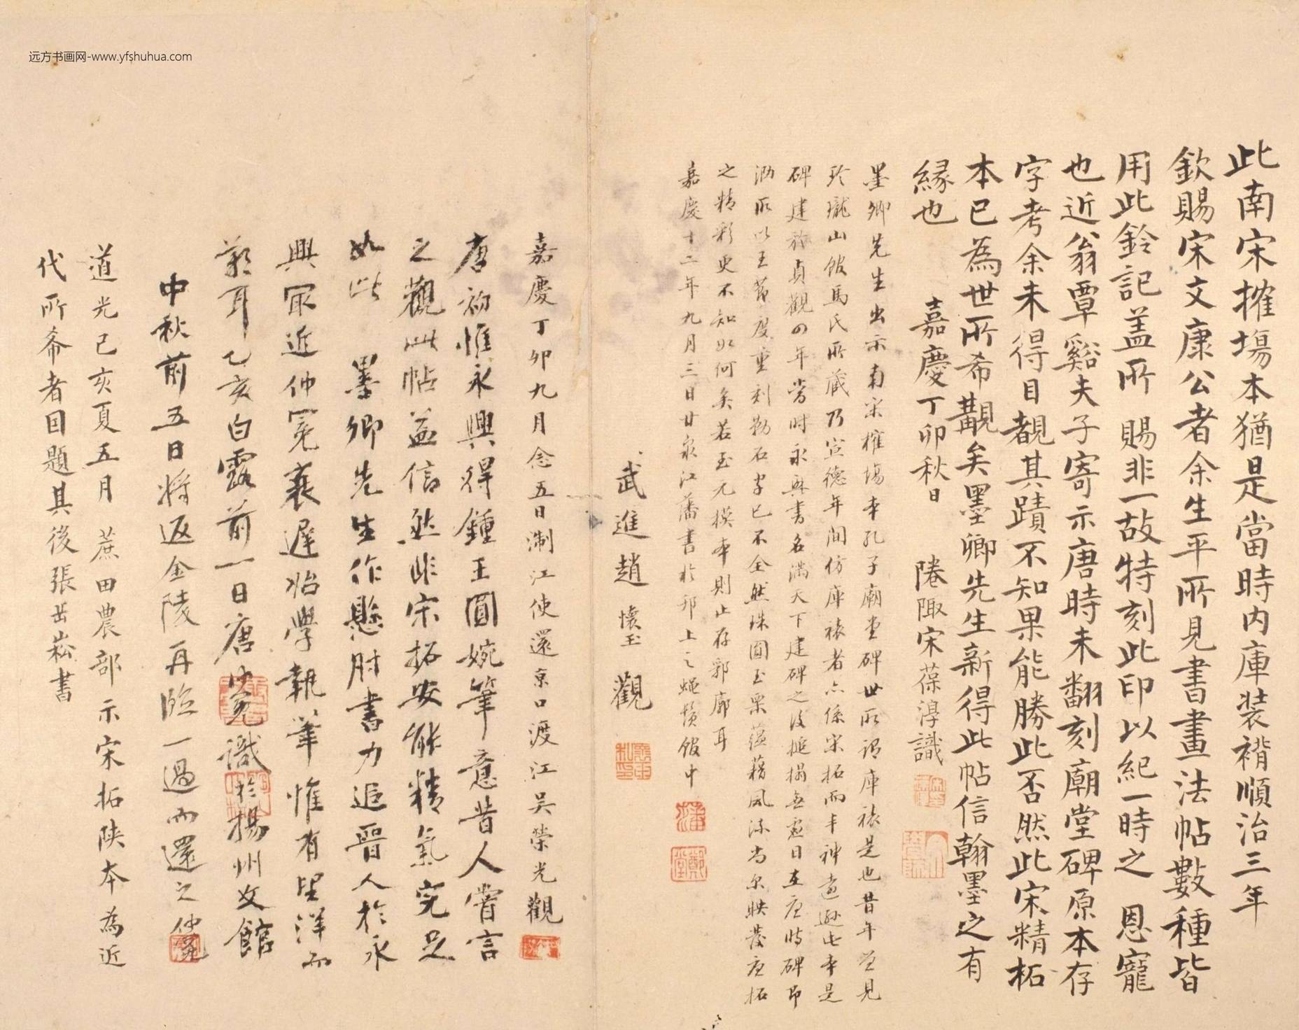 远方书画网-www.yfshuhua.com
此南宋搉場本猶是當時内庫装褙順治三年
欽賜宋文康公者余生平所見書畫法帖數種皆
用此鈐記盖所 賜非一故特刻此印以紀一時之 恩寵
也近翁覃谿夫子寄示唐時未翻刻廟堂碑原本存
字考余未得目覩其蹟不知果能勝此否然此宋精拓
本已為世所希覯矣墨卿先生新得此帖信翰墨之有
緣也 嘉慶丁卯秋日 陭陬宋葆淳識
墨卿先生出示南宋搉場本孔子廟堂碑世所謂庫裱是也昔年曾見
玲瓏山館馬氏所藏乃宣德年間仿庫裱者亦係宋拓而丰神遠遜此本是
碑建於貞觀四年當時永興書名滿天下建碑之後搥搨無虛日至唐時碑即
泐所以王節度重刻勒石字已不全然珠圓玉栗蘊藉風流尚尔映發唐拓
之精彩更不知如何矣若至元摸本則止存郭廓耳
嘉慶十二年九月三日甘泉江藩書於邗上之蠅鬚館中
武進趙懷玉觀
嘉慶丁卯九月念五日浙江使還京口渡江吴榮光觀
唐初惟永興得鍾王圓婉筆意昔人嘗言
之觀此帖益信然非宋拓安能精氣完足
如此 墨卿先生作懸肘書力追晋人於永
興冣近仲冕衰遲怡學執筆惟有望洋而
歎耳乙亥白露前一日唐仲冕識於揚州文館
中秋前五日將返金陵再臨一過而還之仲冕
道光己亥夏五月 蔗田農部示宋拓陝本為近
代所希者因題其後張岳崧書